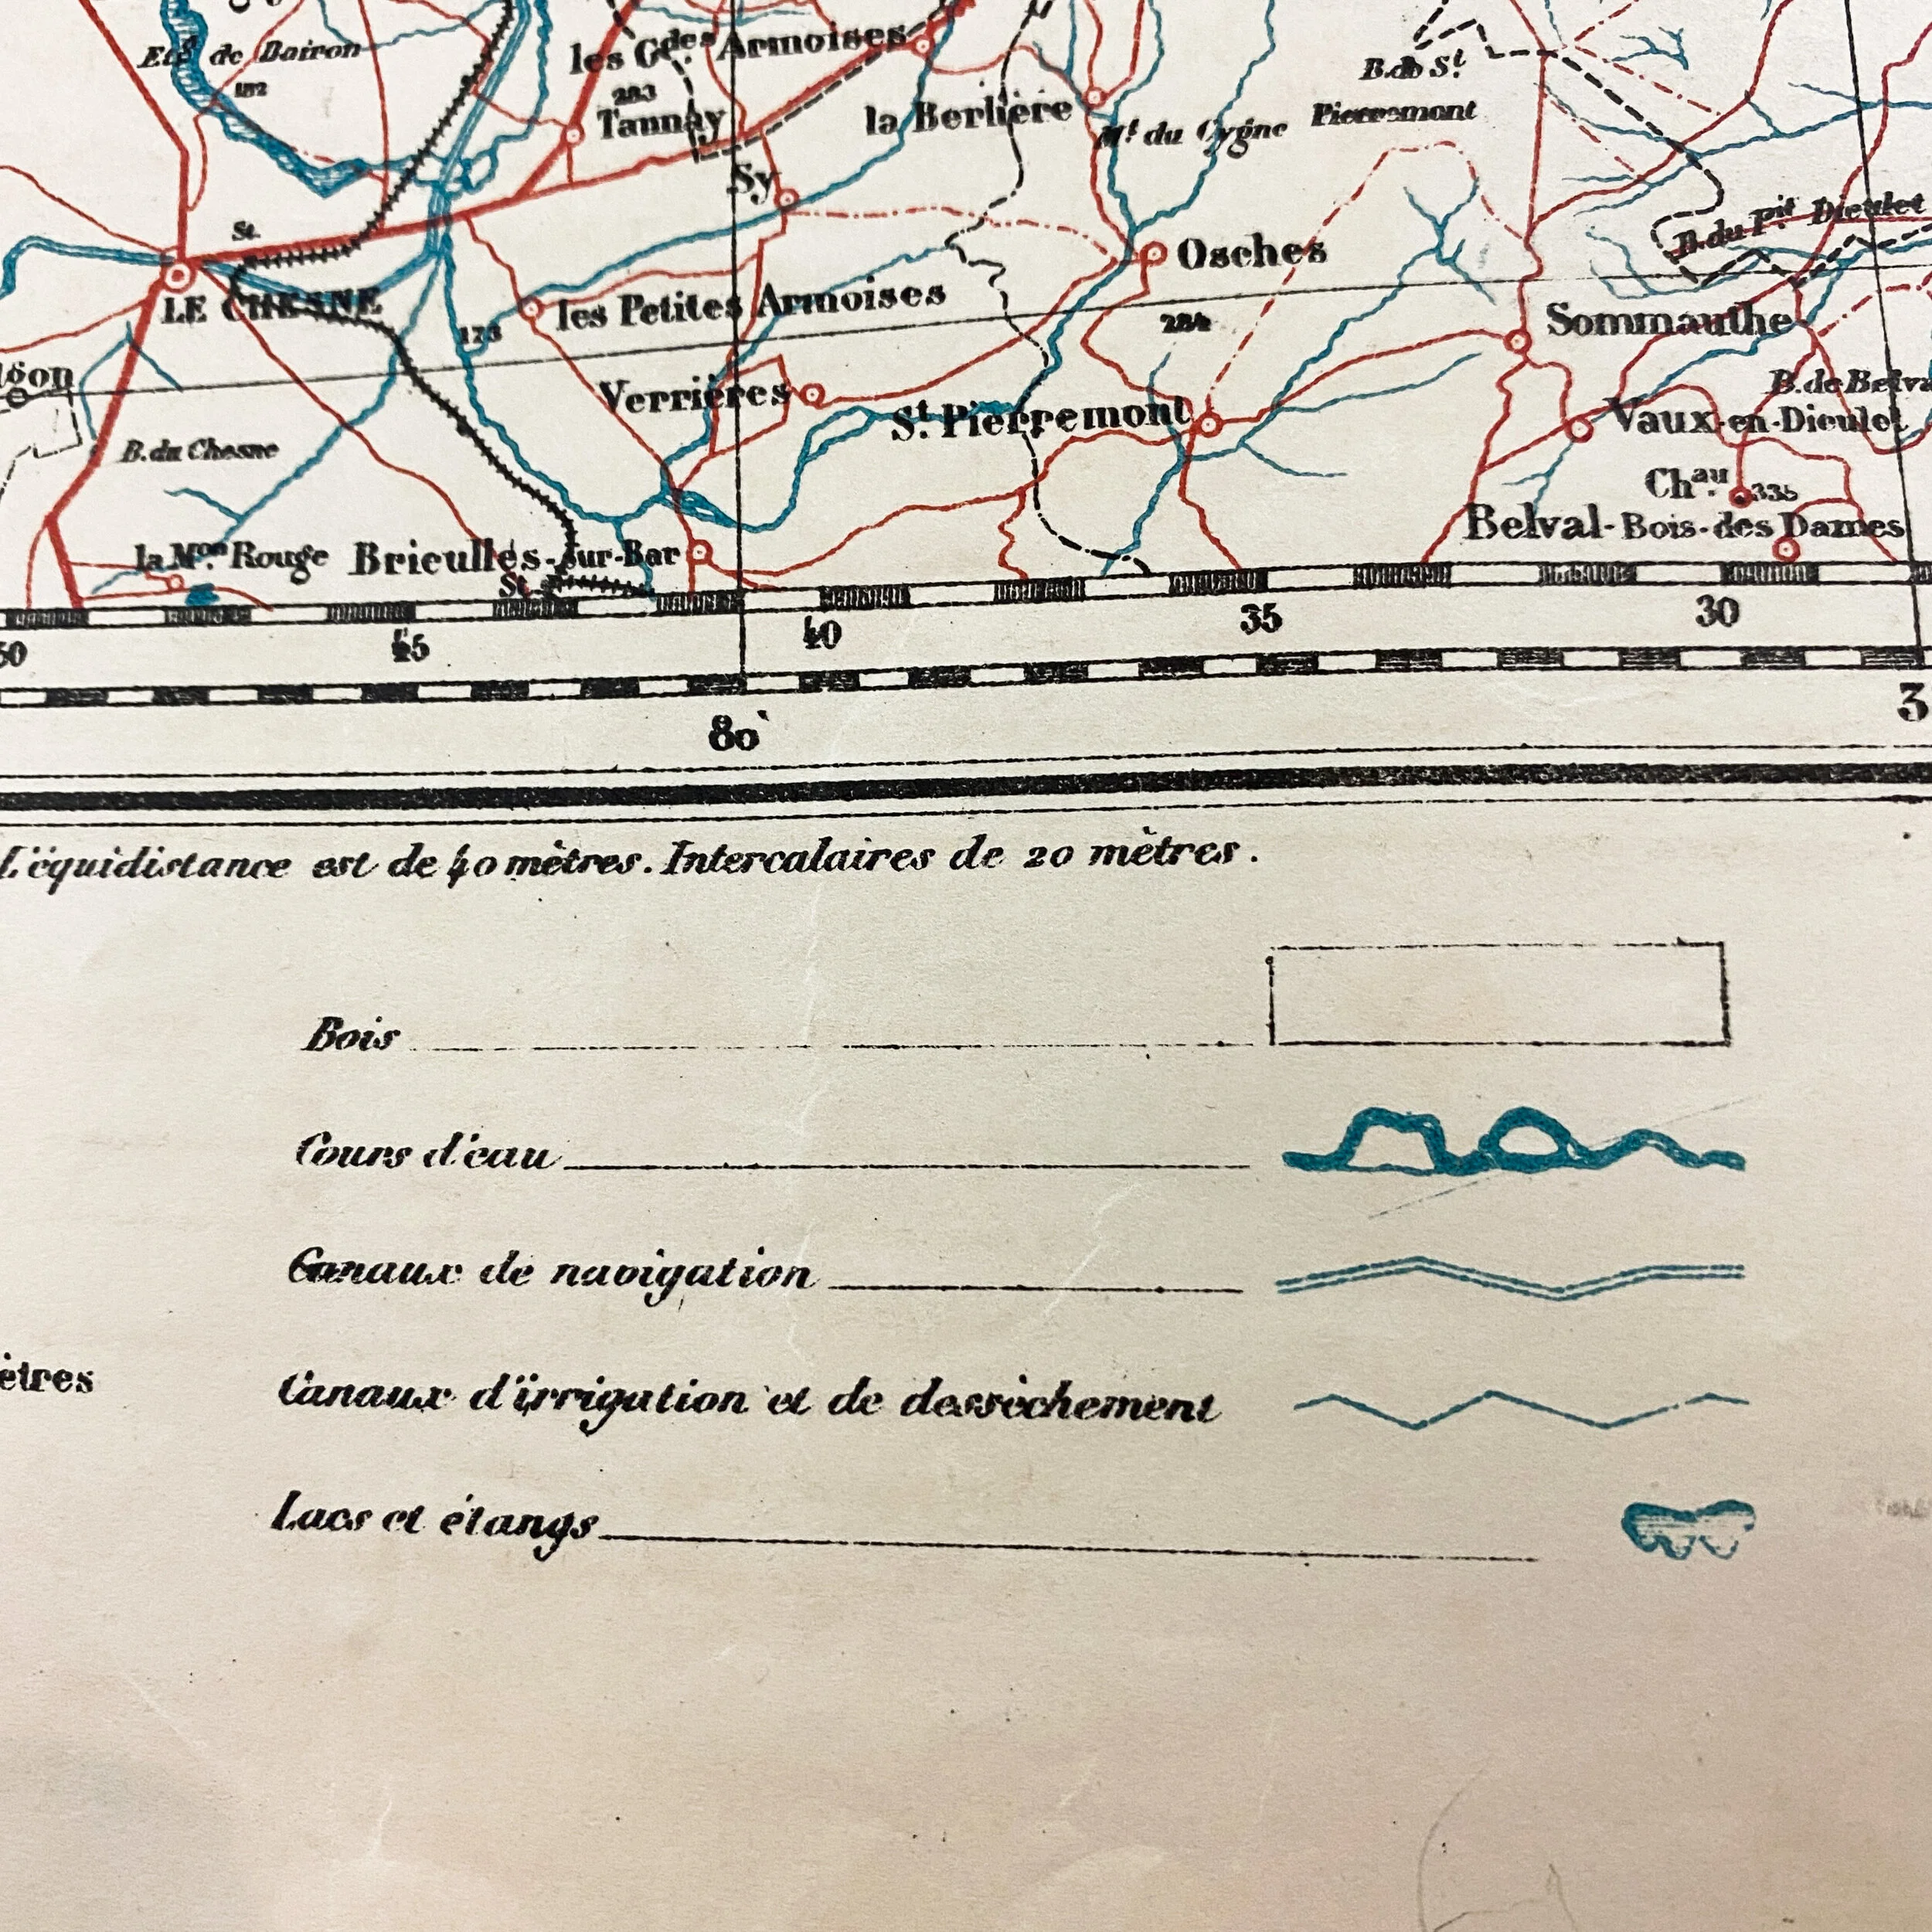 Etg. de Bairon
les Gdes Armoises
B. de St.
Pierremont
182
283
Tannay
la Berlière
Mt du Cygne
Sy
B. du Pit. Dieulet
St.
Osches
LE CHESNE
les Petites Armoises
284
Sommauthe
173
Verrières
St. Pierremont
Vaux-en-Dieulet
B. du Chesne
Chau.
335
Belval-Bois-des Dames
la Mon. Rouge
Brieulles-sur-Bar
St.
45
40
35
30
80`
3
L'équidistance est de 40 mètres. Intercalaires de 20 mètres.
Bois
Cours d'eau
Canaux de navigation
ètres
Canaux d'irrigation et de dessèchement
Lacs et étangs